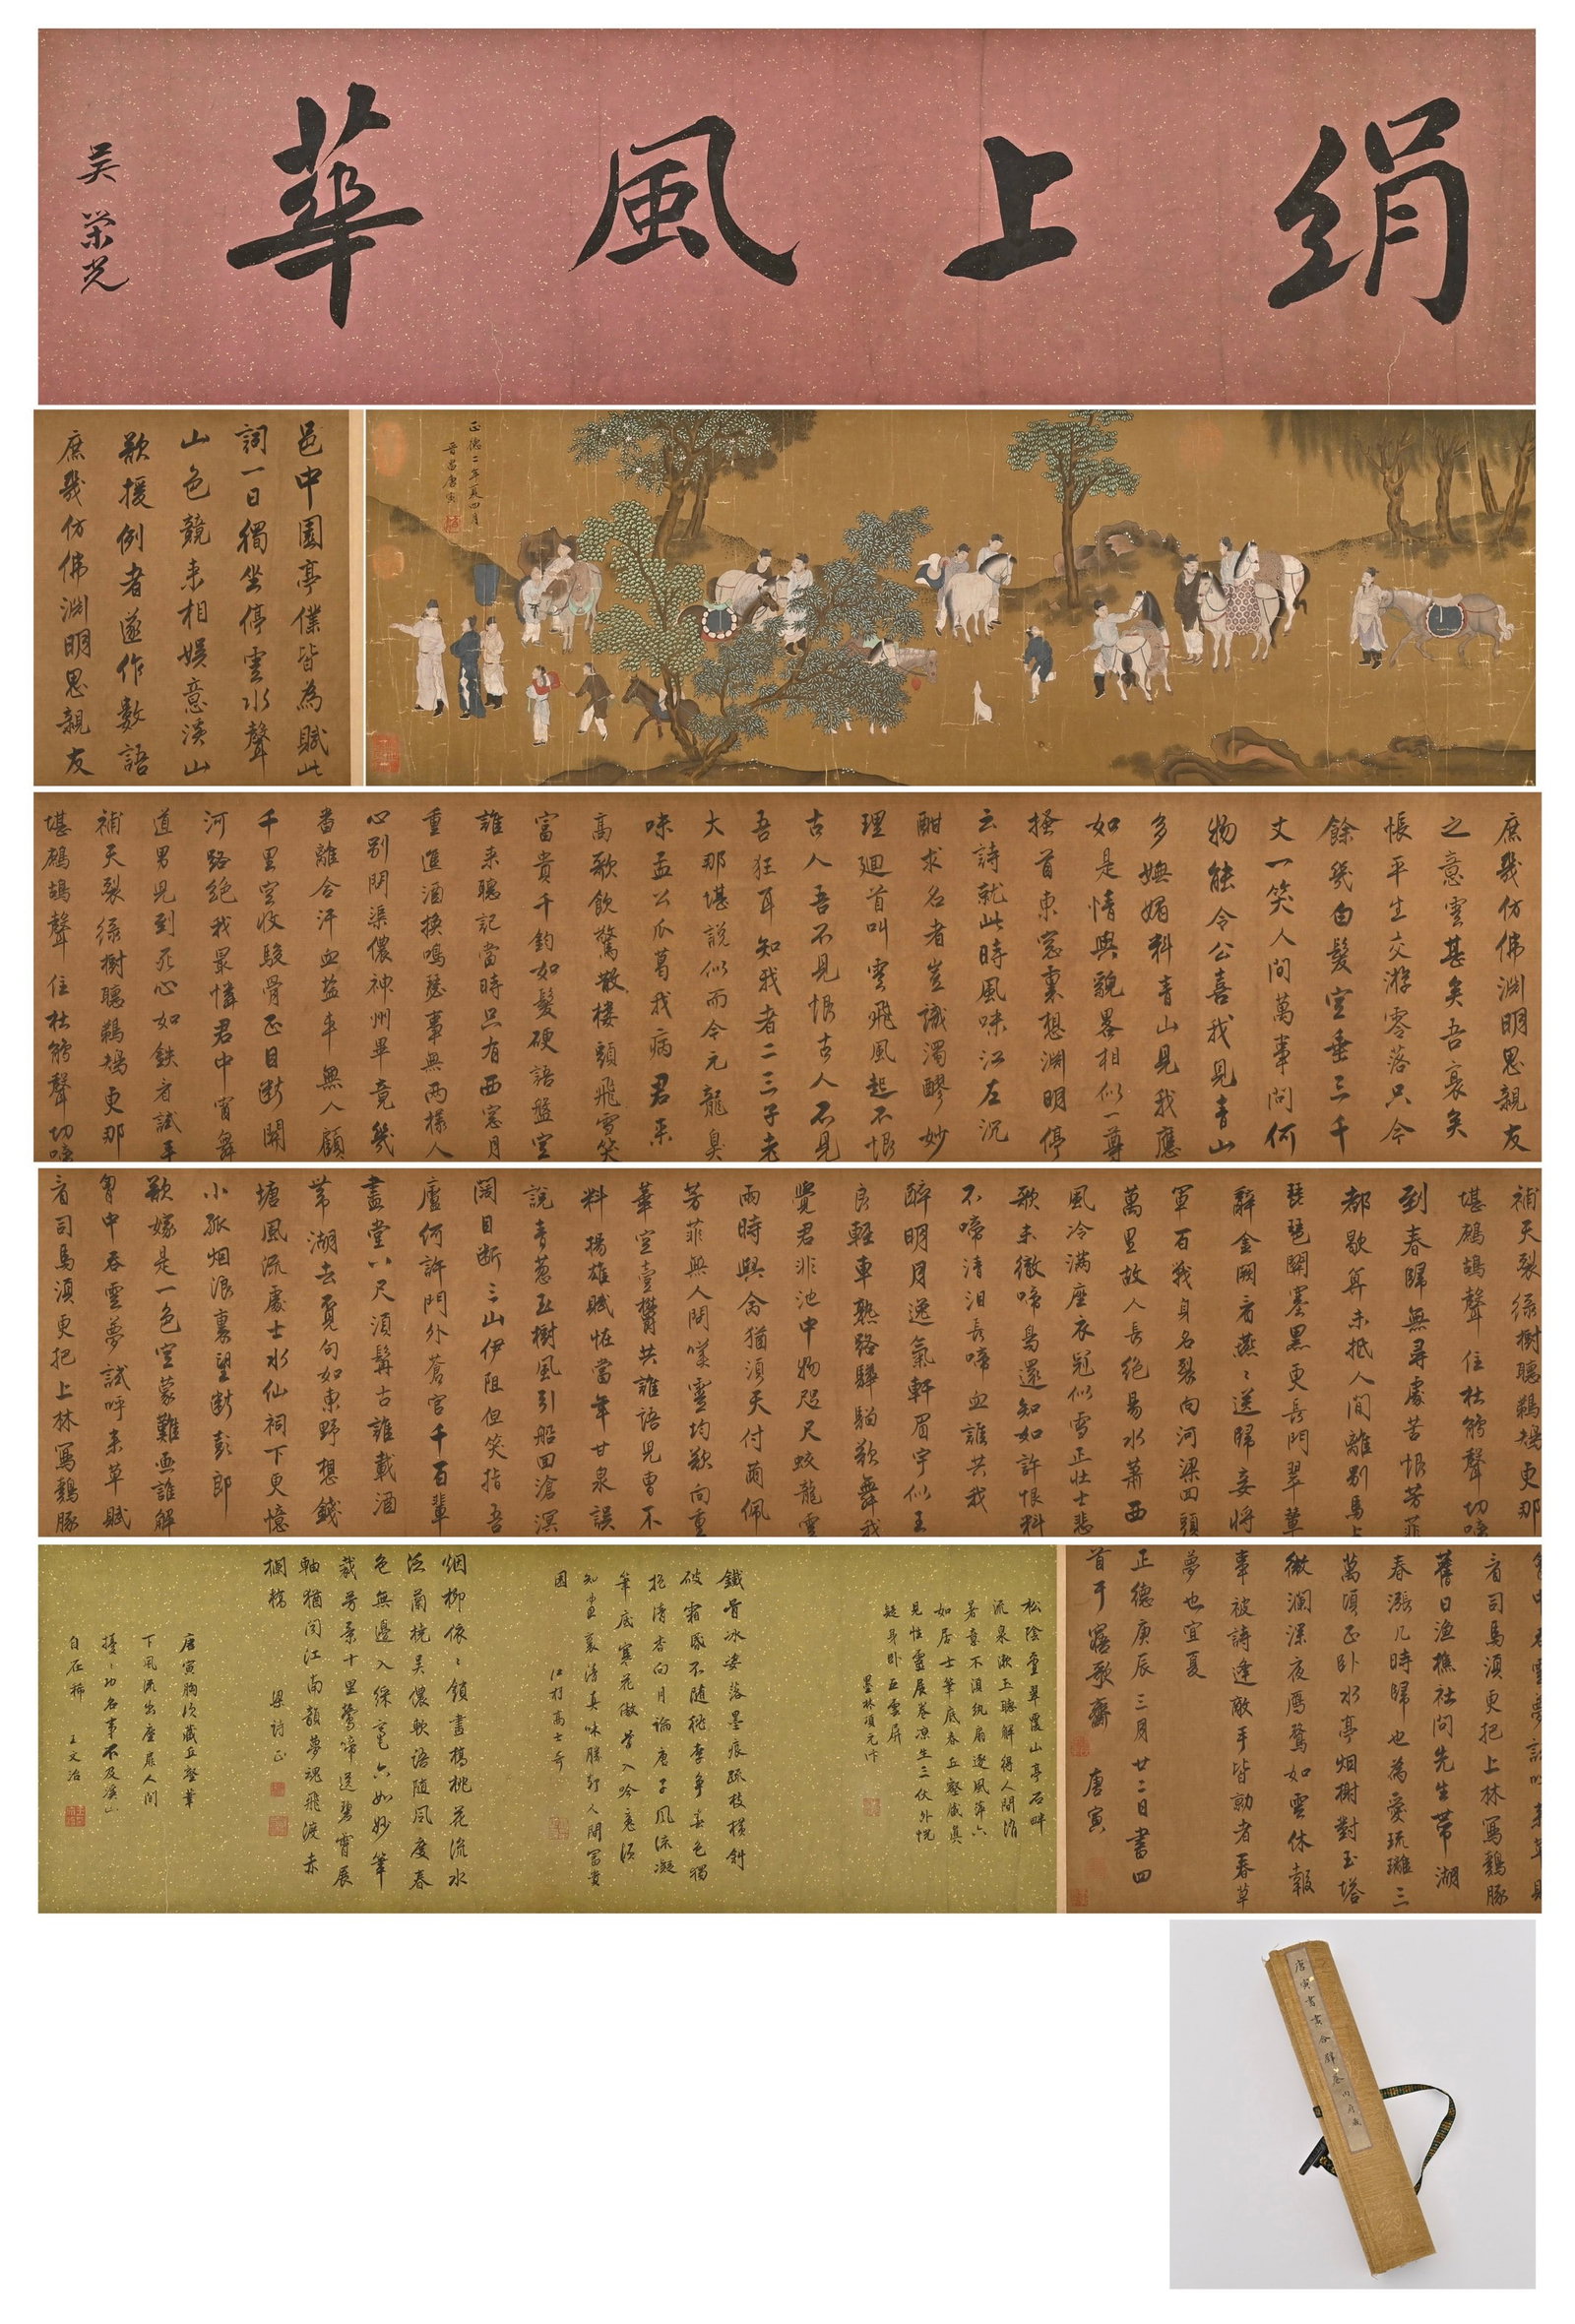 絹上風華
吳榮光
正德二年夏四月
晉昌唐寅
邑中園亭僕皆為賦此
詞一日獨坐停雲水聲
山色競來相娛意溪山
欲援例者遂作數語
庶幾仿佛淵明思親友
庶幾仿佛淵明思親友
之意雲甚矣吾衰矣
悵平生交游零落只今
餘幾白髮空垂三千
丈一笑人間萬事問何
物能令公喜我見青山
多嫵媚料青山見我應
如是情與貌畧相似一尊
搔首東窓裏想淵明停
云詩就此時風味江左沉
酣求名者豈識濁醪妙
理廻首叫雲飛風起不恨
古人吾不見恨古人不見
吾狂耳知我者二三子老
大那堪說似而今元龍臭
味孟公瓜葛我病君來
高歌飲驚散樓頭飛雪笑
富貴千鈞如髮硬語盤空
誰來聽記當時只有西窓月
重進酒換鳴瑟事無兩樣人
心別問渠儂神州畢竟幾
番離合汗血塩車無人顧
千里空收駿骨正目斷關
河路絕我最憐君中宵舞
道男兒到死心如鉄看試手
補天裂綠樹聽鵜鴂更那
堪鷓鴣聲住杜鵑聲切啼
補天裂綠樹聽鵜鴂更那
堪鷓鴣聲住杜鵑聲切啼
到春歸無尋處苦恨芳菲
都歇算未抵人間離別馬上
琵琶關塞黑更長門翠輦
辭金闕看燕〻送歸妾將
軍百戰身名裂向河梁回頭
萬里故人長絕易水蕭西
風冷滿座衣冠似雪正壯士悲
歌未徹啼鳥還知如許恨料
不啼清泪長啼血誰共我
醉明月逸氣軒眉宇似王
良輕車熟路驊騮欲舞我
覺君非池中物咫尺蛟龍雲
雨時與命猶須天付蘭佩
芳菲無人問嘆靈均欲向重
華空壹鬱共誰語兒曹不
料揚雄賦恠當年甘泉誤
說青葱玉樹風引船回滄溟
闊目斷三山伊阻但笑指吾
廬何許門外蒼官千百輩
盡堂堂八尺須髯古誰載酒
帶湖去覓句如東野想錢
塘風流處士水仙祠下更憶
小孤烟浪裏望斷彭郎
欲嫁是一色空蒙難畫誰解
胸中吞雲夢試呼來草賦
看司馬須更把上林寫鷄豚
看司馬須更把上林寫鷄豚
舊日漁樵社問先生帶湖
春漲几時歸也為愛琉璃三
萬頃正卧水亭烟榭對玉塔
微瀾深夜鴈鶩如雲休報
事被詩逢敵手皆勍者春草
夢也宜夏
正德庚辰三月廿二日書四
首于寤歌齋 唐寅
松陰疊翠覆山亭石畔
流泉漱玉聽解得人間消
暑意不須紈扇逐風萍六
如居士筆底春丘壑藏真
見性靈展卷凉生三伏外恍
疑身卧五雲屏
墨林項元汴
鐵骨冰姿落墨痕疏枝橫斜
破霜昏不隨桃李爭春色獨
抱清香向月論唐子風流凝
筆底寒花傲骨入吟魂須
知畫裏清真味勝卻人間富貴
園
江村高士奇
烟柳依〻鎖畫橋桃花流水
泛蘭橈吳儂軟語隨風度春
色無邊入綵毫六如妙筆
裁芳景十里鶯啼送碧霄展
軸猶聞江南韻夢魂飛渡赤
欄橋
梁詩正
唐寅胸次藏丘壑筆
下風流出塵扉人間
擾〻功名事不及溪山
白石稀
王文治